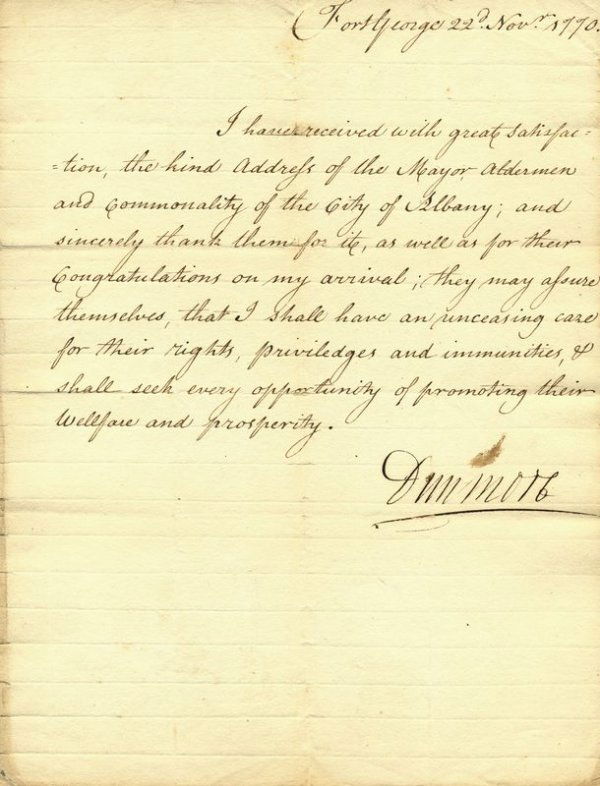 Fort George 22d. Novr. 1770.
I have received with great satisfac=
=tion, the kind Address of the Mayor Aldermen
and Commonality of the City of Albany; and
sincerely thank them for it, as well as for their
Congratulations on my arrival; they may assure
themselves, that I shall have an unceasing care
for their rights, priviledges and immunities, &
shall seek every opportunity of promoting their
Wellfare and prosperity.
Dunmore